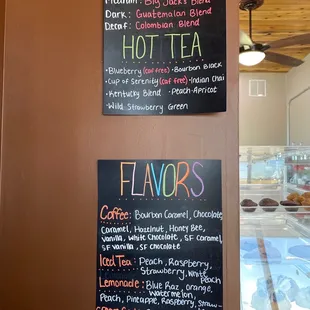 Medium: Big Jack's Blend
Dark: Guatemalan Blend
Decaf: Colombian Blend
HOT TEA
• Blueberry (caf free) • Bourbon Black
• Cup of Serenity (caf free) • Indian Chai
• Kentucky Blend • Peach-Apricot
• Wild Strawberry Green
FLAVORS
Coffee: Bourbon Caramel, Chocolate
Caramel, Hazelnut, Honey Bee,
Vanilla, White Chocolate, SF Caramel,
SF Vanilla, SF Chocolate
Iced Tea: Peach, Raspberry,
Strawberry, White Peach
Lemonade: Blue Raz, Orange,
Watermelon,
Peach, Pineapple, Raspberry, Straw-